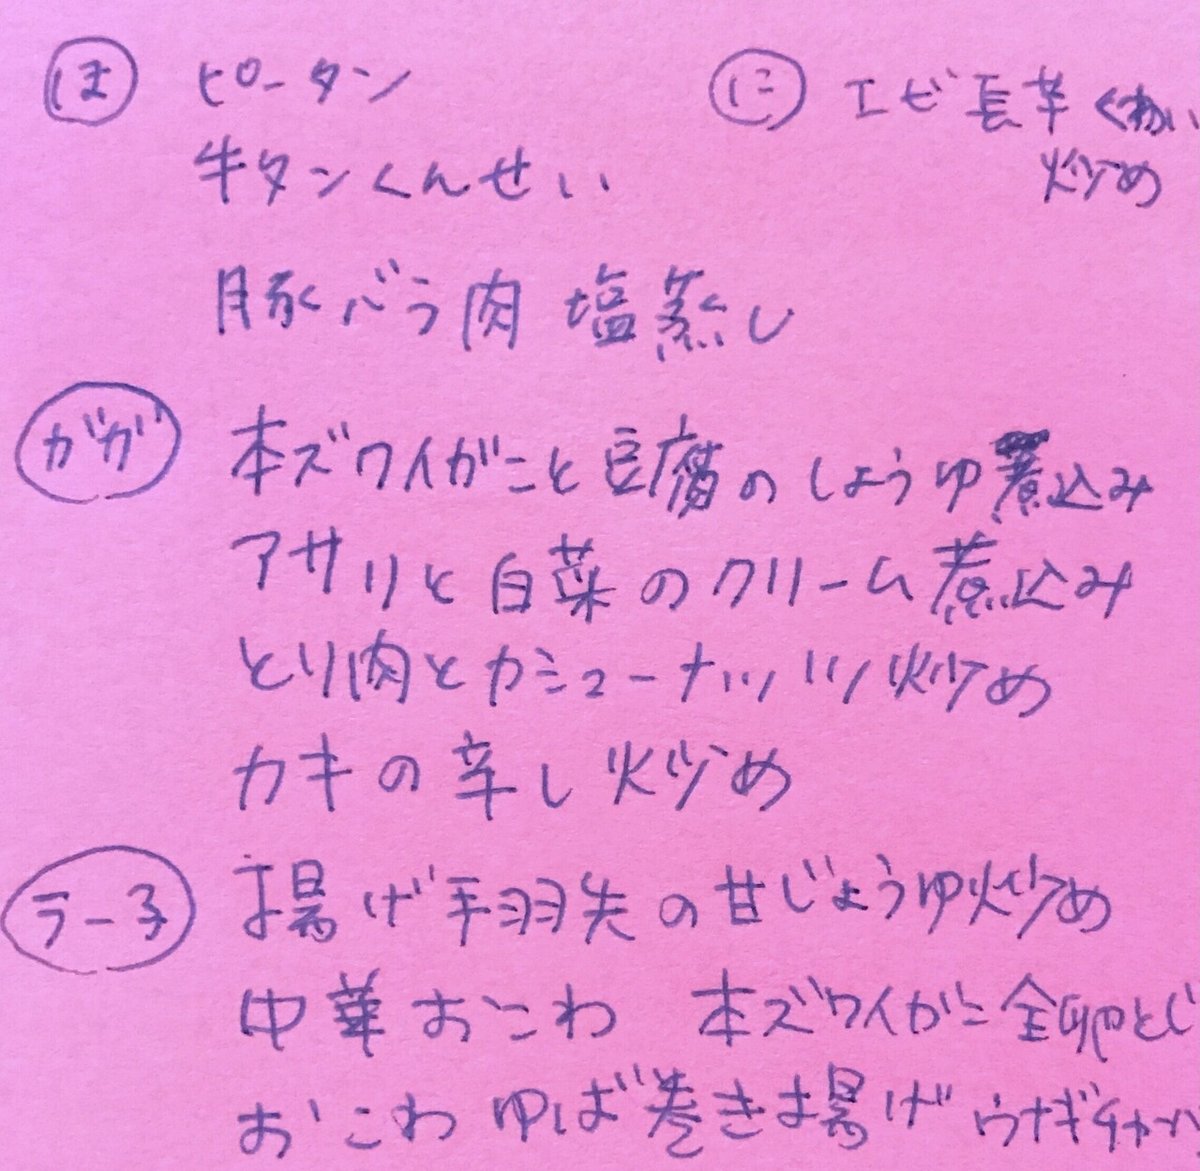 ほ ピータン
に エビ長芋くわい
炒め
牛タンくんせい
豚バラ肉 塩蒸し
がが 本ズワイがにと豆腐のしょうゆ煮込み
アサリと白菜のクリーム煮込み
とり肉とカシューナッツ炒め
カキの辛し炒め
ラー子 揚げ手羽先の甘じょうゆ炒め
中華おこわ 本ズワイがに全卵とじ
おこわ ゆば巻き揚げ ウナギチャーハ